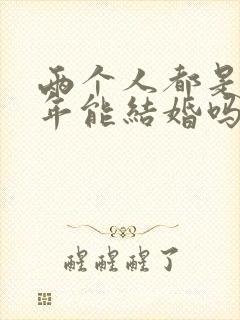 两个人都是
年能結婚吗
醒醒醒了